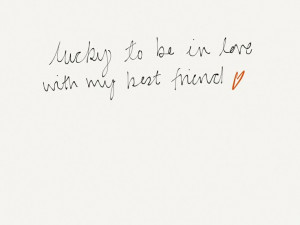 lucky to be in love
with my best friend